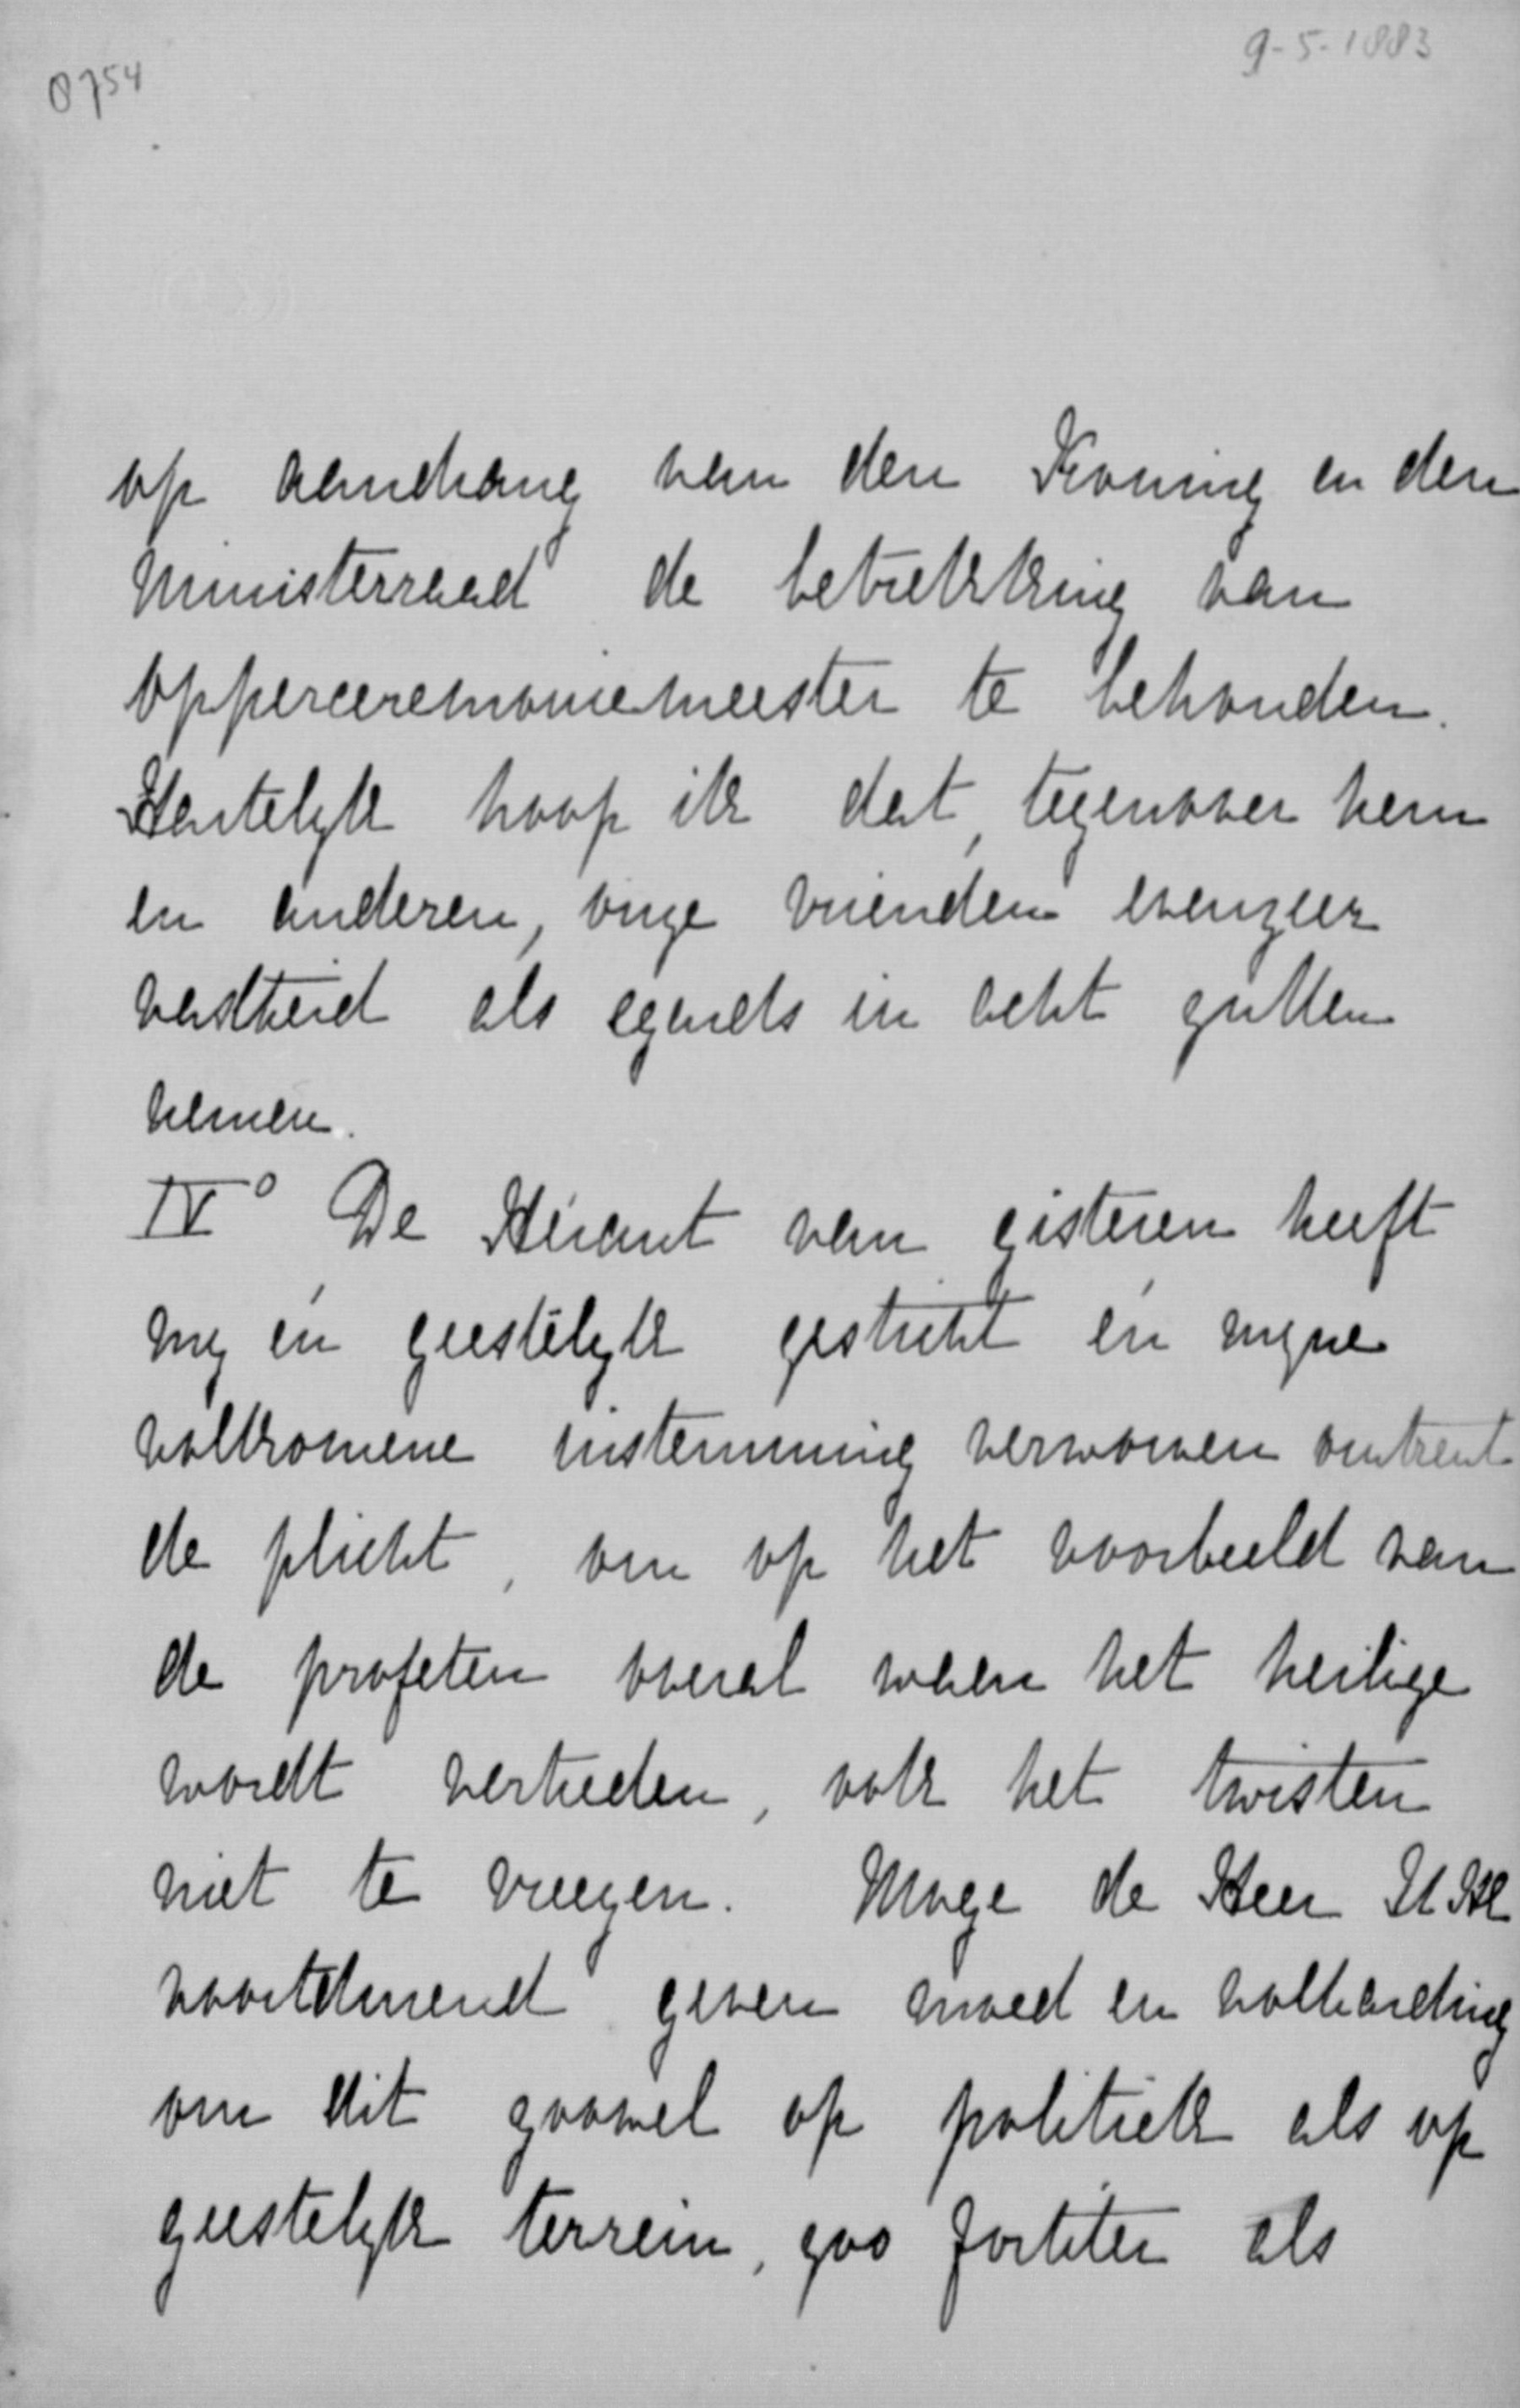 0754
9-5-1883
op aandrang van den Koning en den
Ministerraad de betrekking van
opperceremoniemeester te behouden.
Hartelyk hoop ik dat, tegenover hem
en anderen, onze vrienden evenzeer
vastheid als egards in acht zullen
nemen.
IV° De Heraut van gisteren heeft
my én geestelyk gesticht én myne
volkomene instemming verworven omtrent
de plicht, om op het voorbeeld van
de profeten overal waar het heilige
wordt vertreden, ook het twisten
niet te vreezen. Moge de Heer U HE
voortdurend geven moed en volharding
om dit zoowel op politiek als op
geestelyk terrein, zoo fortiter als